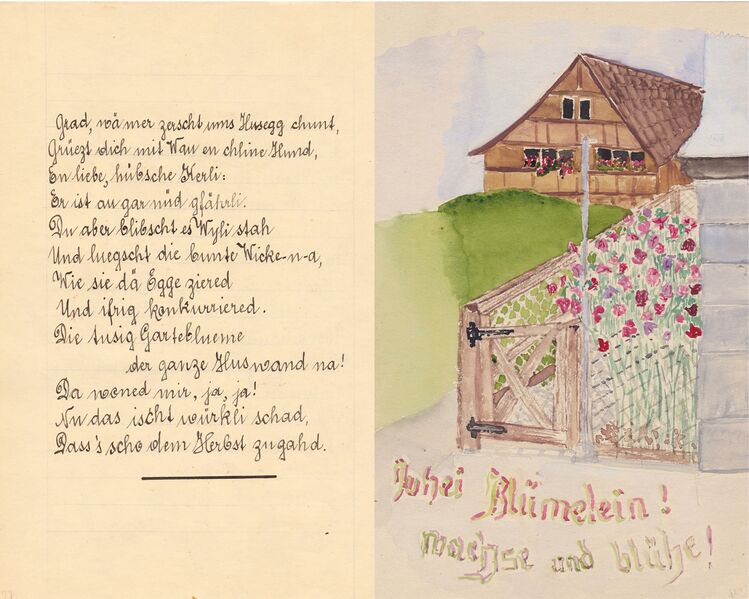 Grad, wä mer zerscht ums Husegg chunt,
Grüezt dich mit Wau en chline Hund,
En liebe, hübsche Kerli:
Er ist au gar nüd gfährli.
Du aber blibscht es Wyli stah
Und luegscht die bunte Wicke-n-a,
Wie sie dä Egge ziered
Und ifrig konkurriered.
Die tusig Garteblueme
der ganze Huswand na!
Da woned mir, ja, ja!
Nu das ischt würkli schad,
Dass's scho dem Herbst zugahd.
Juhei Blümelein!
wachse und blühe!